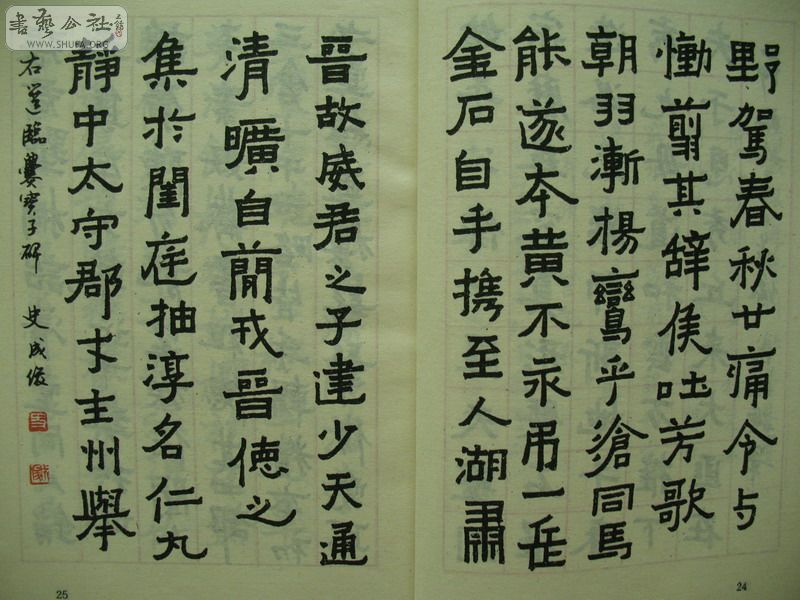 書藝公社
WWW.SHUFA.ORG
野駕春秋廿痛令与
慟翦其辞侯吐芳歌
朝羽漸楊鸞乎滄同馬
能遂本黄不永吊一岳
金石自手携至人湖肅
24
晉故威君之子建少天通
清曠自蕳戎晉徳之
集於閨庭抽淳名仁丸
靜中太守郡才主州舉
右選臨爨寶子碑 史成俊
25